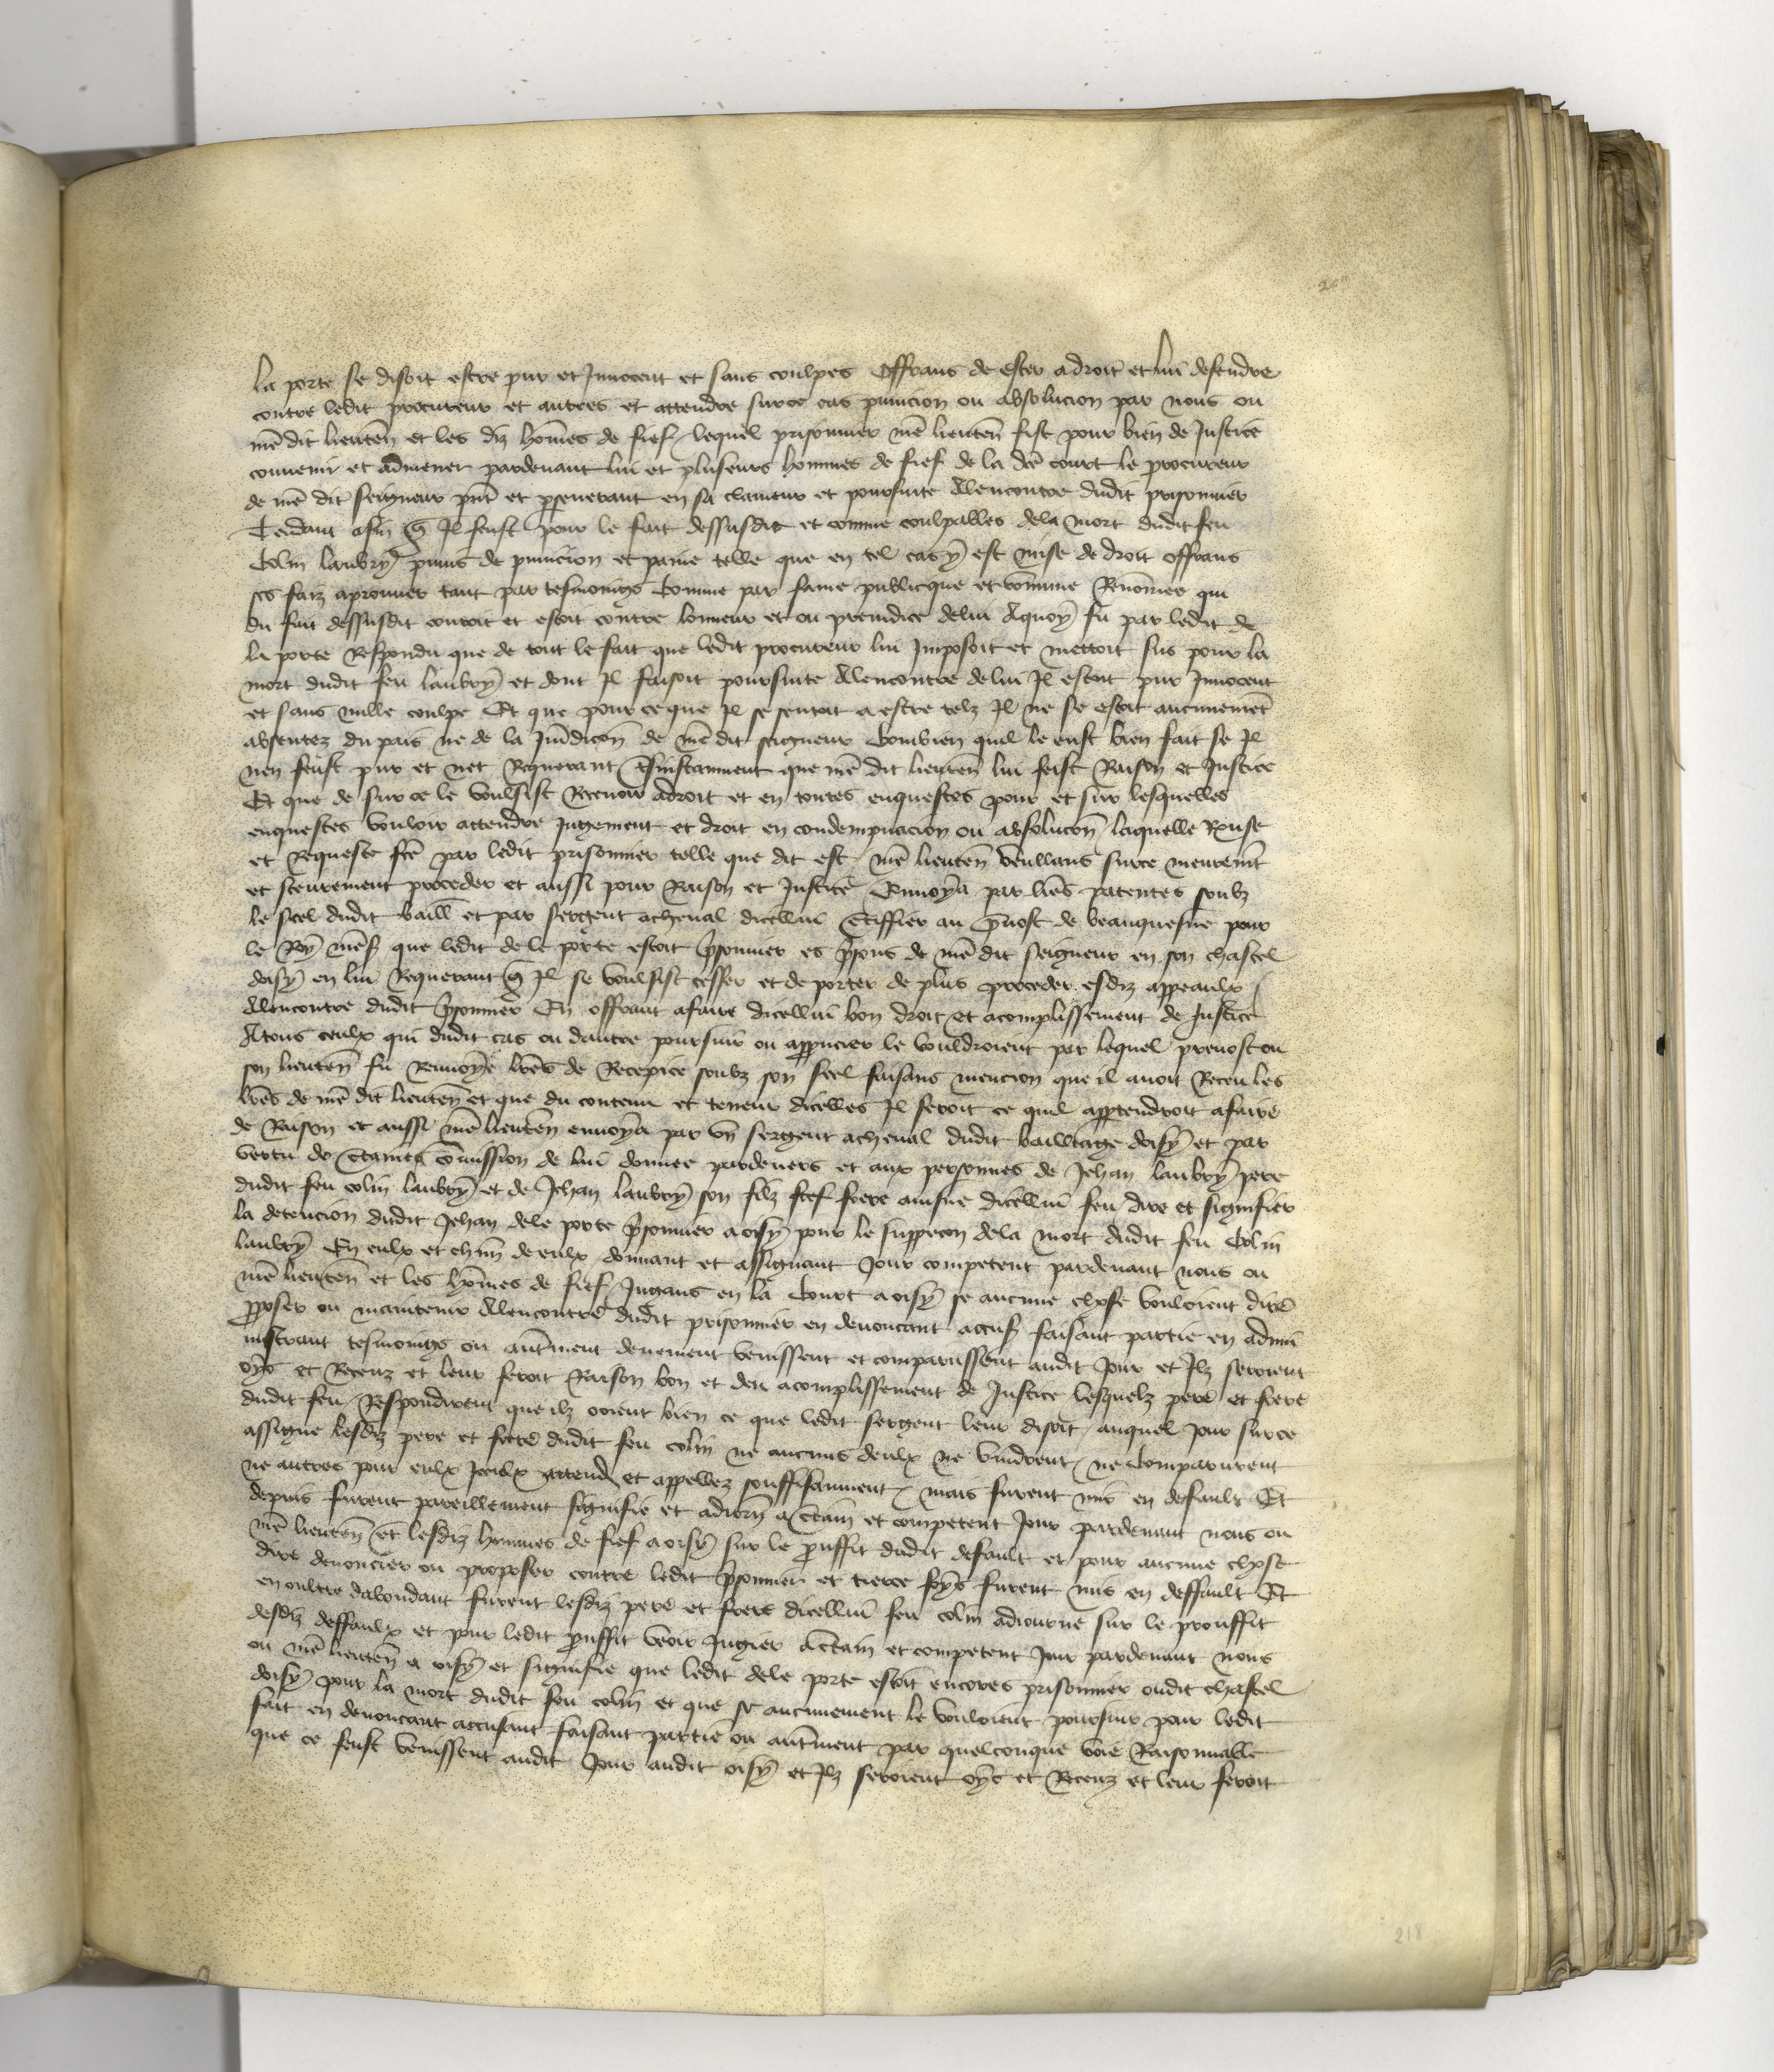 la porte se disoit estre pur et Innocent et sans coulpes Offrans de ester a droit et lui defendre
contre ledit procureur et autres et attendre surce cas punicion ou absolucion par nous ou
mē dit lieuteñ et les diz hōmes de fief / lequel prisonnier mē lieuteñ fist pour bien de Justice
convenir et admener pardevant lui et pluseurs hommes de fief de la dcē court le procureur
de mē dit seigneur p̄nt et p̄severant en sa clameur et poursuite Alencontre dudit prisonnier
Tendant afin q̄ Il feust pour le fait dessusdit et comme coulpables dela mort dudit feu
Colin laubry punis de punicion et paine telle que en tel cas y est mise de droit offrans
ses faiz aprouver tant par tesmoings Comme par fame publicque et cōmune Renōmee qui
du fait dessusdit couroit et estoit contre lonneur et ou preiudice delui Aquoy fu par ledit de
la porte Respondu que de tout le fait que ledit procureur lui Imposoit et mettoit sus pour la
mort dudit feu laubry et dont Il faisoit poursuite Alencontre delui Il estoit pur Innocent
et sans nulle coulpe Et que pour ce que Il se sentoit a estre telz Il ne se estoit aucunemēt
absentez du pais ne de la Jurīdicoñ de mē dit seigneur Combien quil le eust bien fait se Il
nen feust pur et net Requerant Instamment que mē dit lieuteñ lui feist Raison et Justice
Et que de sur ce le voulsist Recevoir adroit et en toutes enquestes pour et sur lesquelles
enquestes vouloir attendre Jugement et droit en condempnacion ou absolucoñ laquelle
et Requeste fcē par ledit prisonnier telle que dit est / mē lieuteñ veullans surce meuremt
et seurement proceder et aussi pour Raison et Justice Envoya par lrēs patentes soubz
le seel dudit baill et par sergent acheval dicellui c̄tiffier au p̄vost de beauquesne pour
le Roy mēs que ledit de le porte estoit p̄sonnier es p̄sons de mē dit seigneur en son chastel
doisy en lui Requerant q̄ Il se voulsist cesser et de porter de plus proceder esdiz appeaulx
Alencontre dudit p̄sonnier En offrant afaire dicellui bon droit et acomplissement de Justice
Atous ceulx qui dudit cas ou dautre poursuir ou app̄ucier le vouldroient par lequel prevost ou
son lieuteñ fu Renvoyē lrēs de Recepice soubz son seel faisans mencion que il avoit Receu les
lrēs de mē dit lieuteñ et que du contenu et teneur dicelles Il feroit ce quil appartendroit afaire
de Raison et aussi mē lieuteñ envoya par vn sergent acheval dudit bailliage doisy et par
vertu de c̄taine cōmission de lui donnee pardevers et aux personnes de Jehan laubry pere
dudit feu colin laubry et de Jehan laubry son filz frere ainsne dicellui feu dire et signifier
la detencion dudit Jehan dele porte p̄sonnier aoisy pour le supp̄con dela mort dudit feu Colin
laubry En eulx et chūn de eulx donnant et assignant Jour competent pardevant nous ou
mē lieuteñ et les hōmes de fief Jugans en la Court aoisy se aucune chose vouloient dire
p̄poser ou maintenir Alencontre dudit prisonnier en denoncant accusa faisant partie en admi
nistrant tesmoings ou autrement deuement venissent et comparussent audit Jour et Ilz seroient
oys et Receuz et leur feroit Raison bon et deu acomplissement de Justice lesquelz pere et frere
dudit feu Respondirent que ilz ooient bien ce que ledit sergent leur disoit / auquel Jour surce
assigne lesdiz pere et frere dudit feu colin ne aucuns deulx ne vindrent ne Comparurent
ne autres pour eulx Jceulx attendz et appellez souffisamment / mais furent mis en default Et
depuis furent pareillement signifie et adiorñ a c̄tain et competent Jour pardevant nous ou
mē lieuteñ et lesdiz hommes de fief aoisy sur le prouffit dudit default et pour aucune chose
dire denoncier ou proposer contre ledit p̄sonnier et tierce foys furent mis en deffault Et
en oultre dabondant furent lesdiz pere et frere dicellui feu colin adiourne sur le prouffit
desdiz deffaulx et pour ledit p̄uffit veoir Jugier Ac̄tain et competent Jour pardevant nous
ou mē lieuteñ a oisy et signifie que ledit dele porte estoit encores prisonnier oudit chastel
doisy pour la mort dudit feu colin et que se aucunement le vouloient poursuir pour ledit
fait en denoncant accusant faisant partie ou autrement par quelconque voie Raisonnable
que ce feust venissent audit Jour audit oisy et Ilz seroient oys et Receuz et leur feroit
218